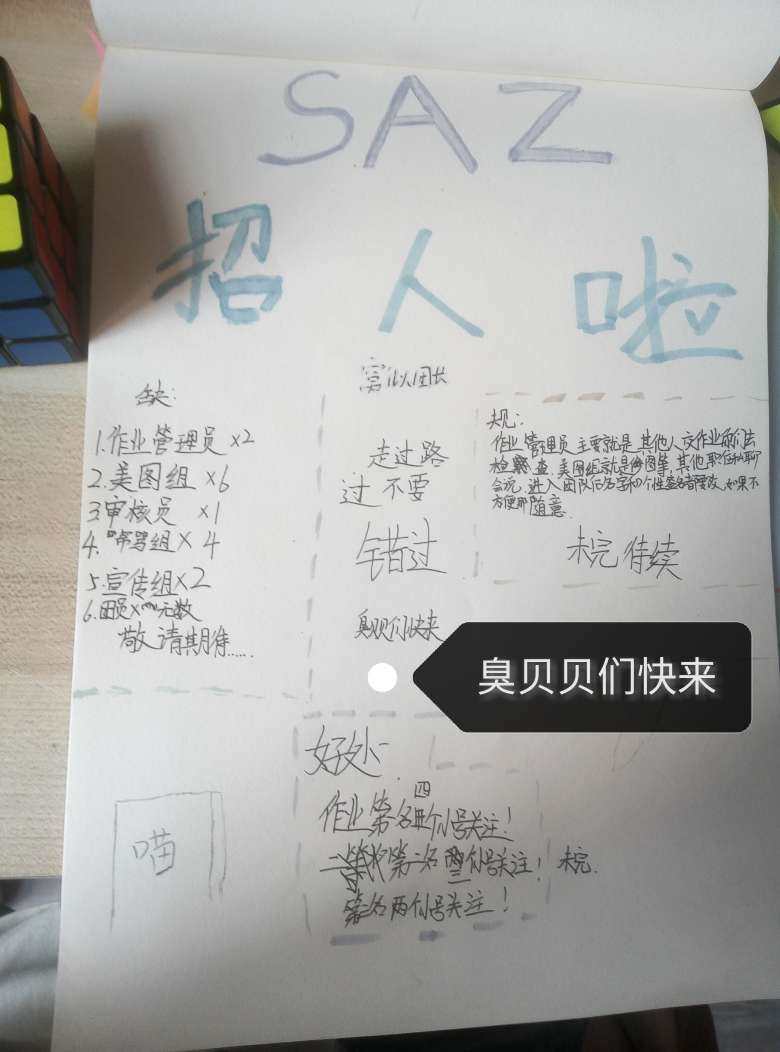 SAZ
招人啦
缺:
1.作业管理员 x2
2.美图组 x6
3.审核员 x1
4.帮骂组 x 4
5.宣传组x2
6.团员x 无数
敬请期待......
窝似团长
走过路
过不要
错过
臭贝贝们快来
规:
作业管理员主要就是其他人交作业
检查.美图组就是修图等,其他职位私聊
会说.进入团队后名字和个性签名要改,如果不
方便那随意.
未完待续
臭贝贝们快来
好处
四
作业第名个小号关注!
第一名小号关注! 未完.
名两个小号关注!
喵